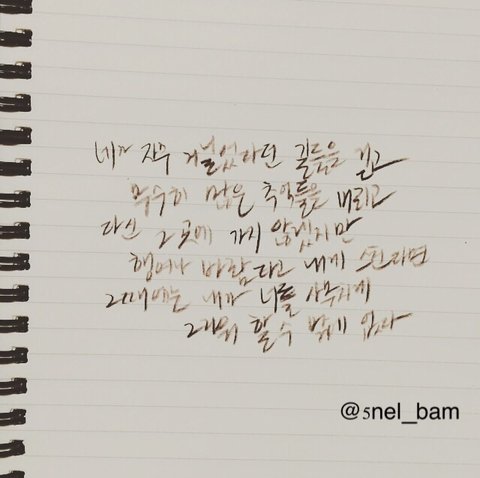 네가 자주 거닐었다던 길들을 걷고
무수히 많은 추억들을 버리고
다신 그 곳에 가지 않겠지만
행여나 바람 타고 내게 온다면
그때에는 내가 너를 사무치게
그리워 할 수 밖에 없다
@5nel_bam